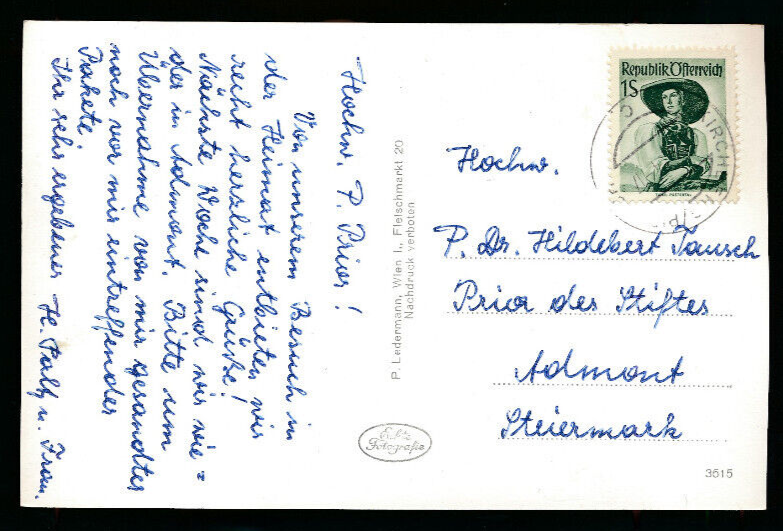 Hochw. P. Prior!
Von unserem Besuch in
der Heimat entbieten wir
recht herzliche Grüße!
Nächste Woche sind wir wie-
der in Admont. Bitte um
Übernahme von mir gesandter
noch vor mir eintreffender
Pakete.
Ihr sehr ergebener H. u. Frau.
P. Ledermann, Wien I., Fleischmarkt 20
Nachdruck verboten
Echte
Fotografie
Republik Österreich
1S
KIRCH
Hochw.
P. Dr. Hildebert Tausch
Prior des Stiftes
Admont
Steiermark
3515